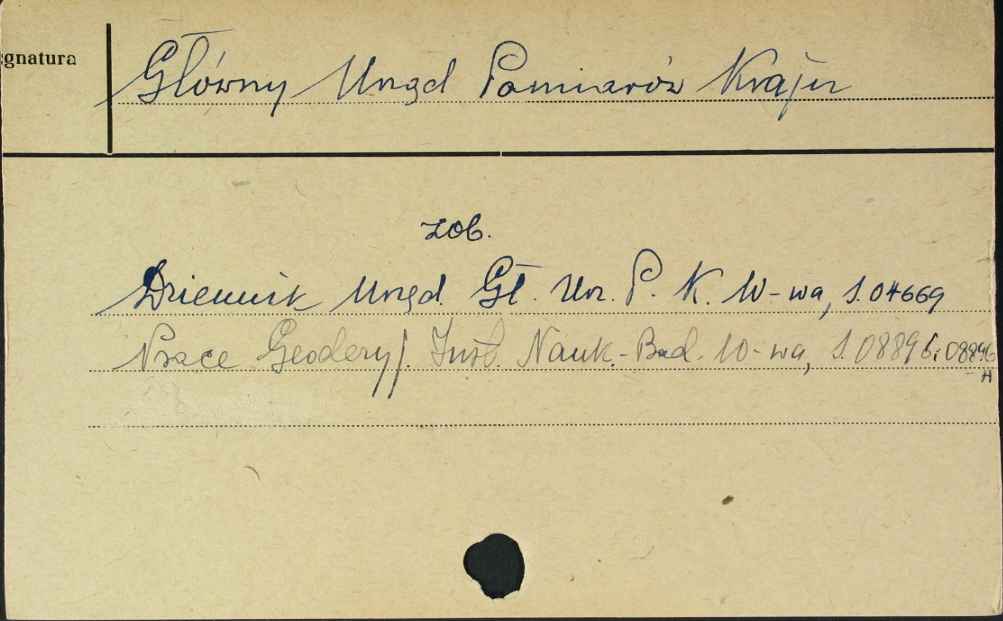 gnatura
Główny Urząd Pomiarów Kraju
zob.
Dziennik Urzęd. Gł. Urz. P. K. W-wa, S. 04669
Prace Geodezyj. Inst. Nauk.-Bad. W-wa, S. 08896; 08896
A